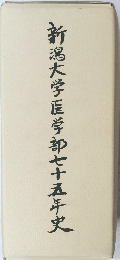 新潟大学医学部七十五年史